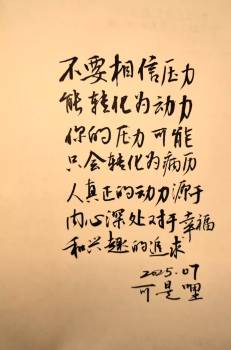 不要相信压力
能转化为动力
你的压力可能
只会转化为病历
人真正的动力源于
内心深处对于幸福
和兴趣的追求
2025.07
可是哩